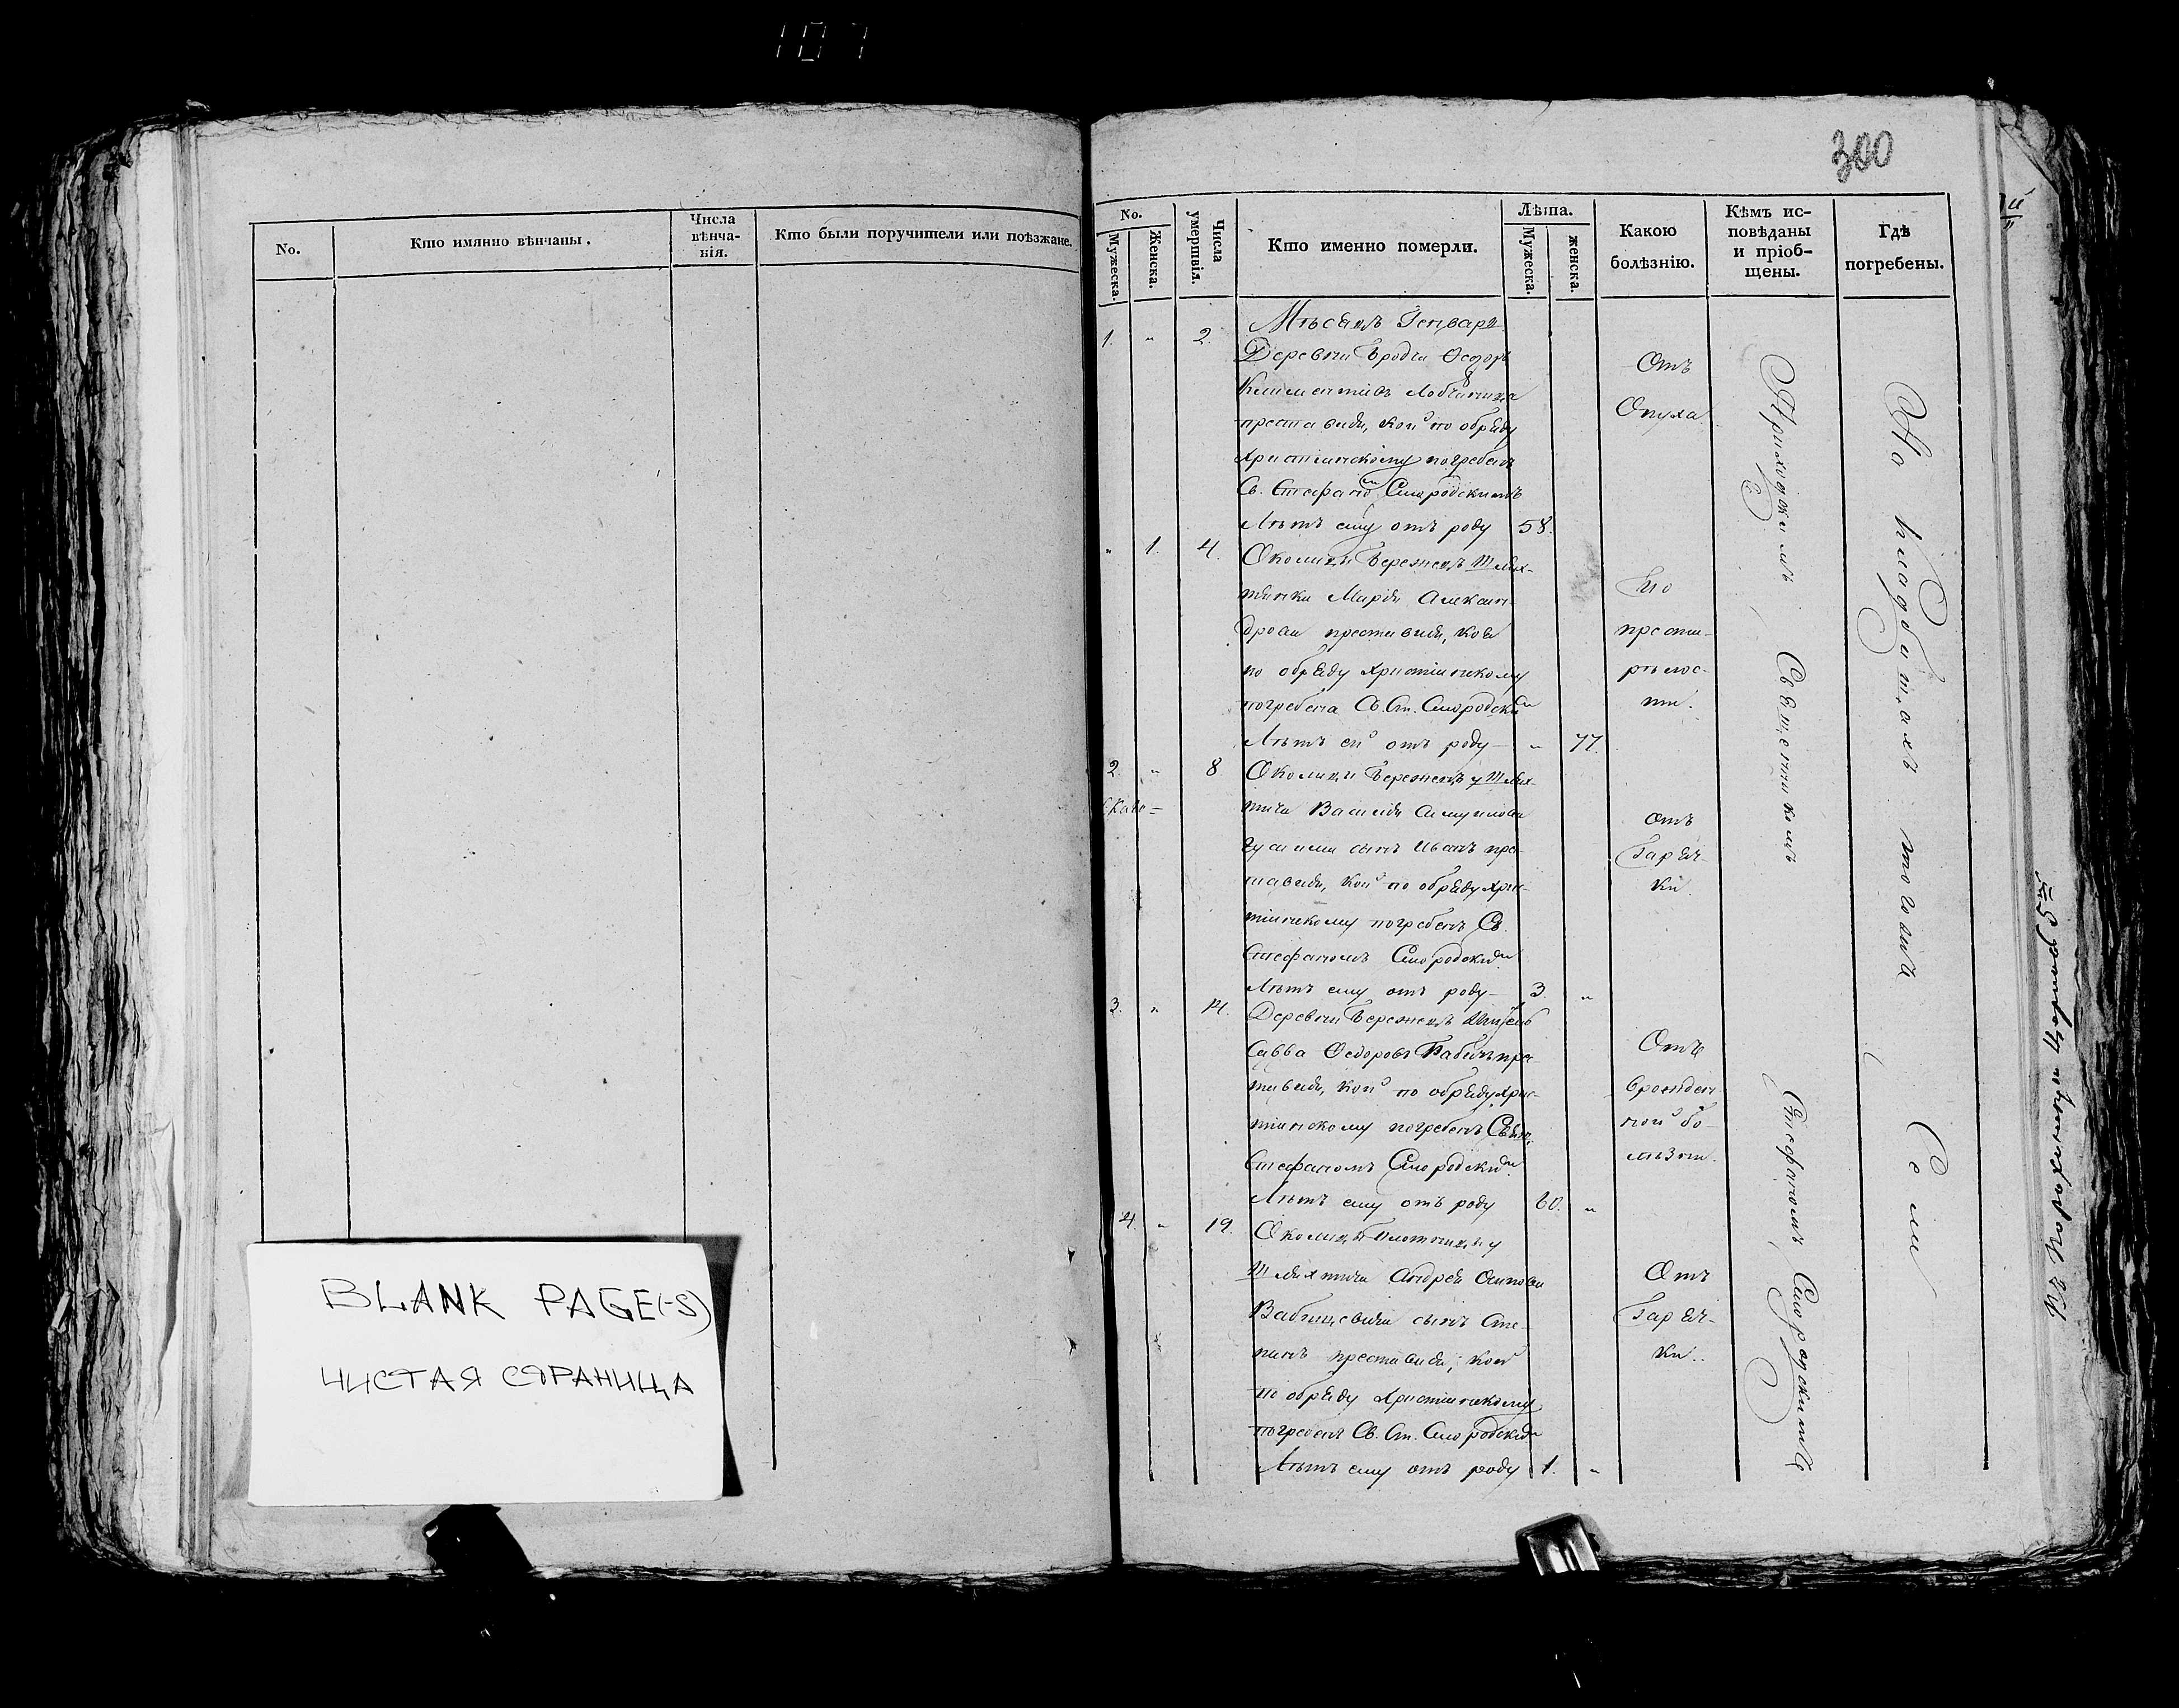 107
No.
Кто имянно вѣнчаны.
Числа
вѣнча-
нія.
Кто были поручители или поѣзжане.
BLANK PAGE(-S)
ЧИСТАЯ СТРАНИЦА
300
No.
Мужеска.
Женска.
Числа
умертвія.
Кто именно померли.
Лѣта.
Мужеска.
женска.
Какою
болѣзнію.
Кѣмъ ис-
повѣданы
и пріоб-
щены.
Гдѣ
погребены.
Мѣсяцъ Генварь
1. " 2. Деревни Бродки Ѳеодоръ
преставися, кой по обряду
Христіанскому погребенъ
Св. Стефаномъ Смородскимъ
Лѣтъ ему отъ роду 58.
Отъ
Опуха
" 1. 4. Околицы Бережекъ Шлях-
тянка Марія Алексан-
дрова преставися, коя
по обряду Христіанскому
погребена Св. Ст. Смородским
Лѣтъ ей отъ роду " 77.
По
преста-
рѣлос-
ти.
2. " 8. Околицы Бережекъ у Шлях-
тича Василія Самуилова
сынъ Иванъ пре-
ставися, кой по обряду Хрис-
тіанскому погребенъ Св.
Стефаномъ Смородским
Лѣтъ ему отъ роду 3. "
Отъ
Гаряч-
ки.
3. " 14. Деревни Бережекъ
Савва Ѳедоровъ Бабичъ пре-
ставися, кой по обряду Хрис-
тіанскому погребенъ Свящ.
Стефаномъ Смородским
Лѣтъ ему отъ роду 60. "
Отъ
врожден-
ной бо-
лѣзни.
4. " 19. Околицы Плотницы у
Шляхтича Андрея Осипова
сынъ Сте-
панъ преставися, кой
по обряду Христіанскому
погребенъ Св. Ст. Смородским
Лѣтъ ему отъ роду 1. "
Отъ
Гаряч-
ки.
Приходскимъ Священникомъ Стефаномъ Смородскимъ
На кладбищахъ того Села